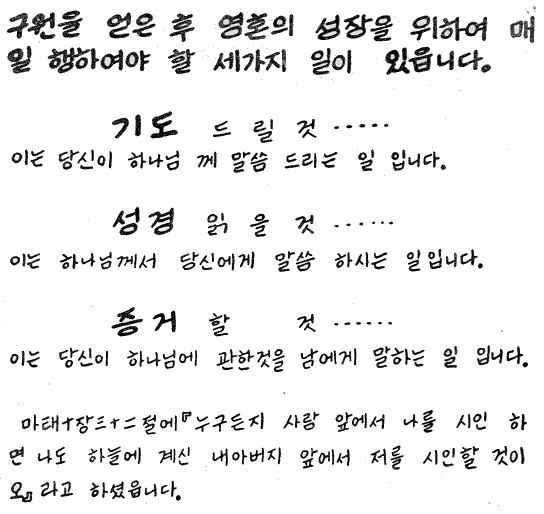 구원을 얻은 후 영혼의 성장을 위하여 매
일 행하여야 할 세가지 일이 있읍니다.
기도 드릴 것 ·····
이는 당신이 하나님 께 말씀 드리는 일 입니다.
성경 읽을 것 ······
이는 하나님께서 당신에게 말씀 하시는 일입니다.
증거 할 것 ······
이는 당신이 하나님에 관한것을 남에게 말하는 일 입니다.
마태十장三十二절에『누구든지 사람 앞에서 나를 시인 하
면 나도 하늘에 계신 내아버지 앞에서 저를 시인할 것이
오』라고 하셨읍니다.